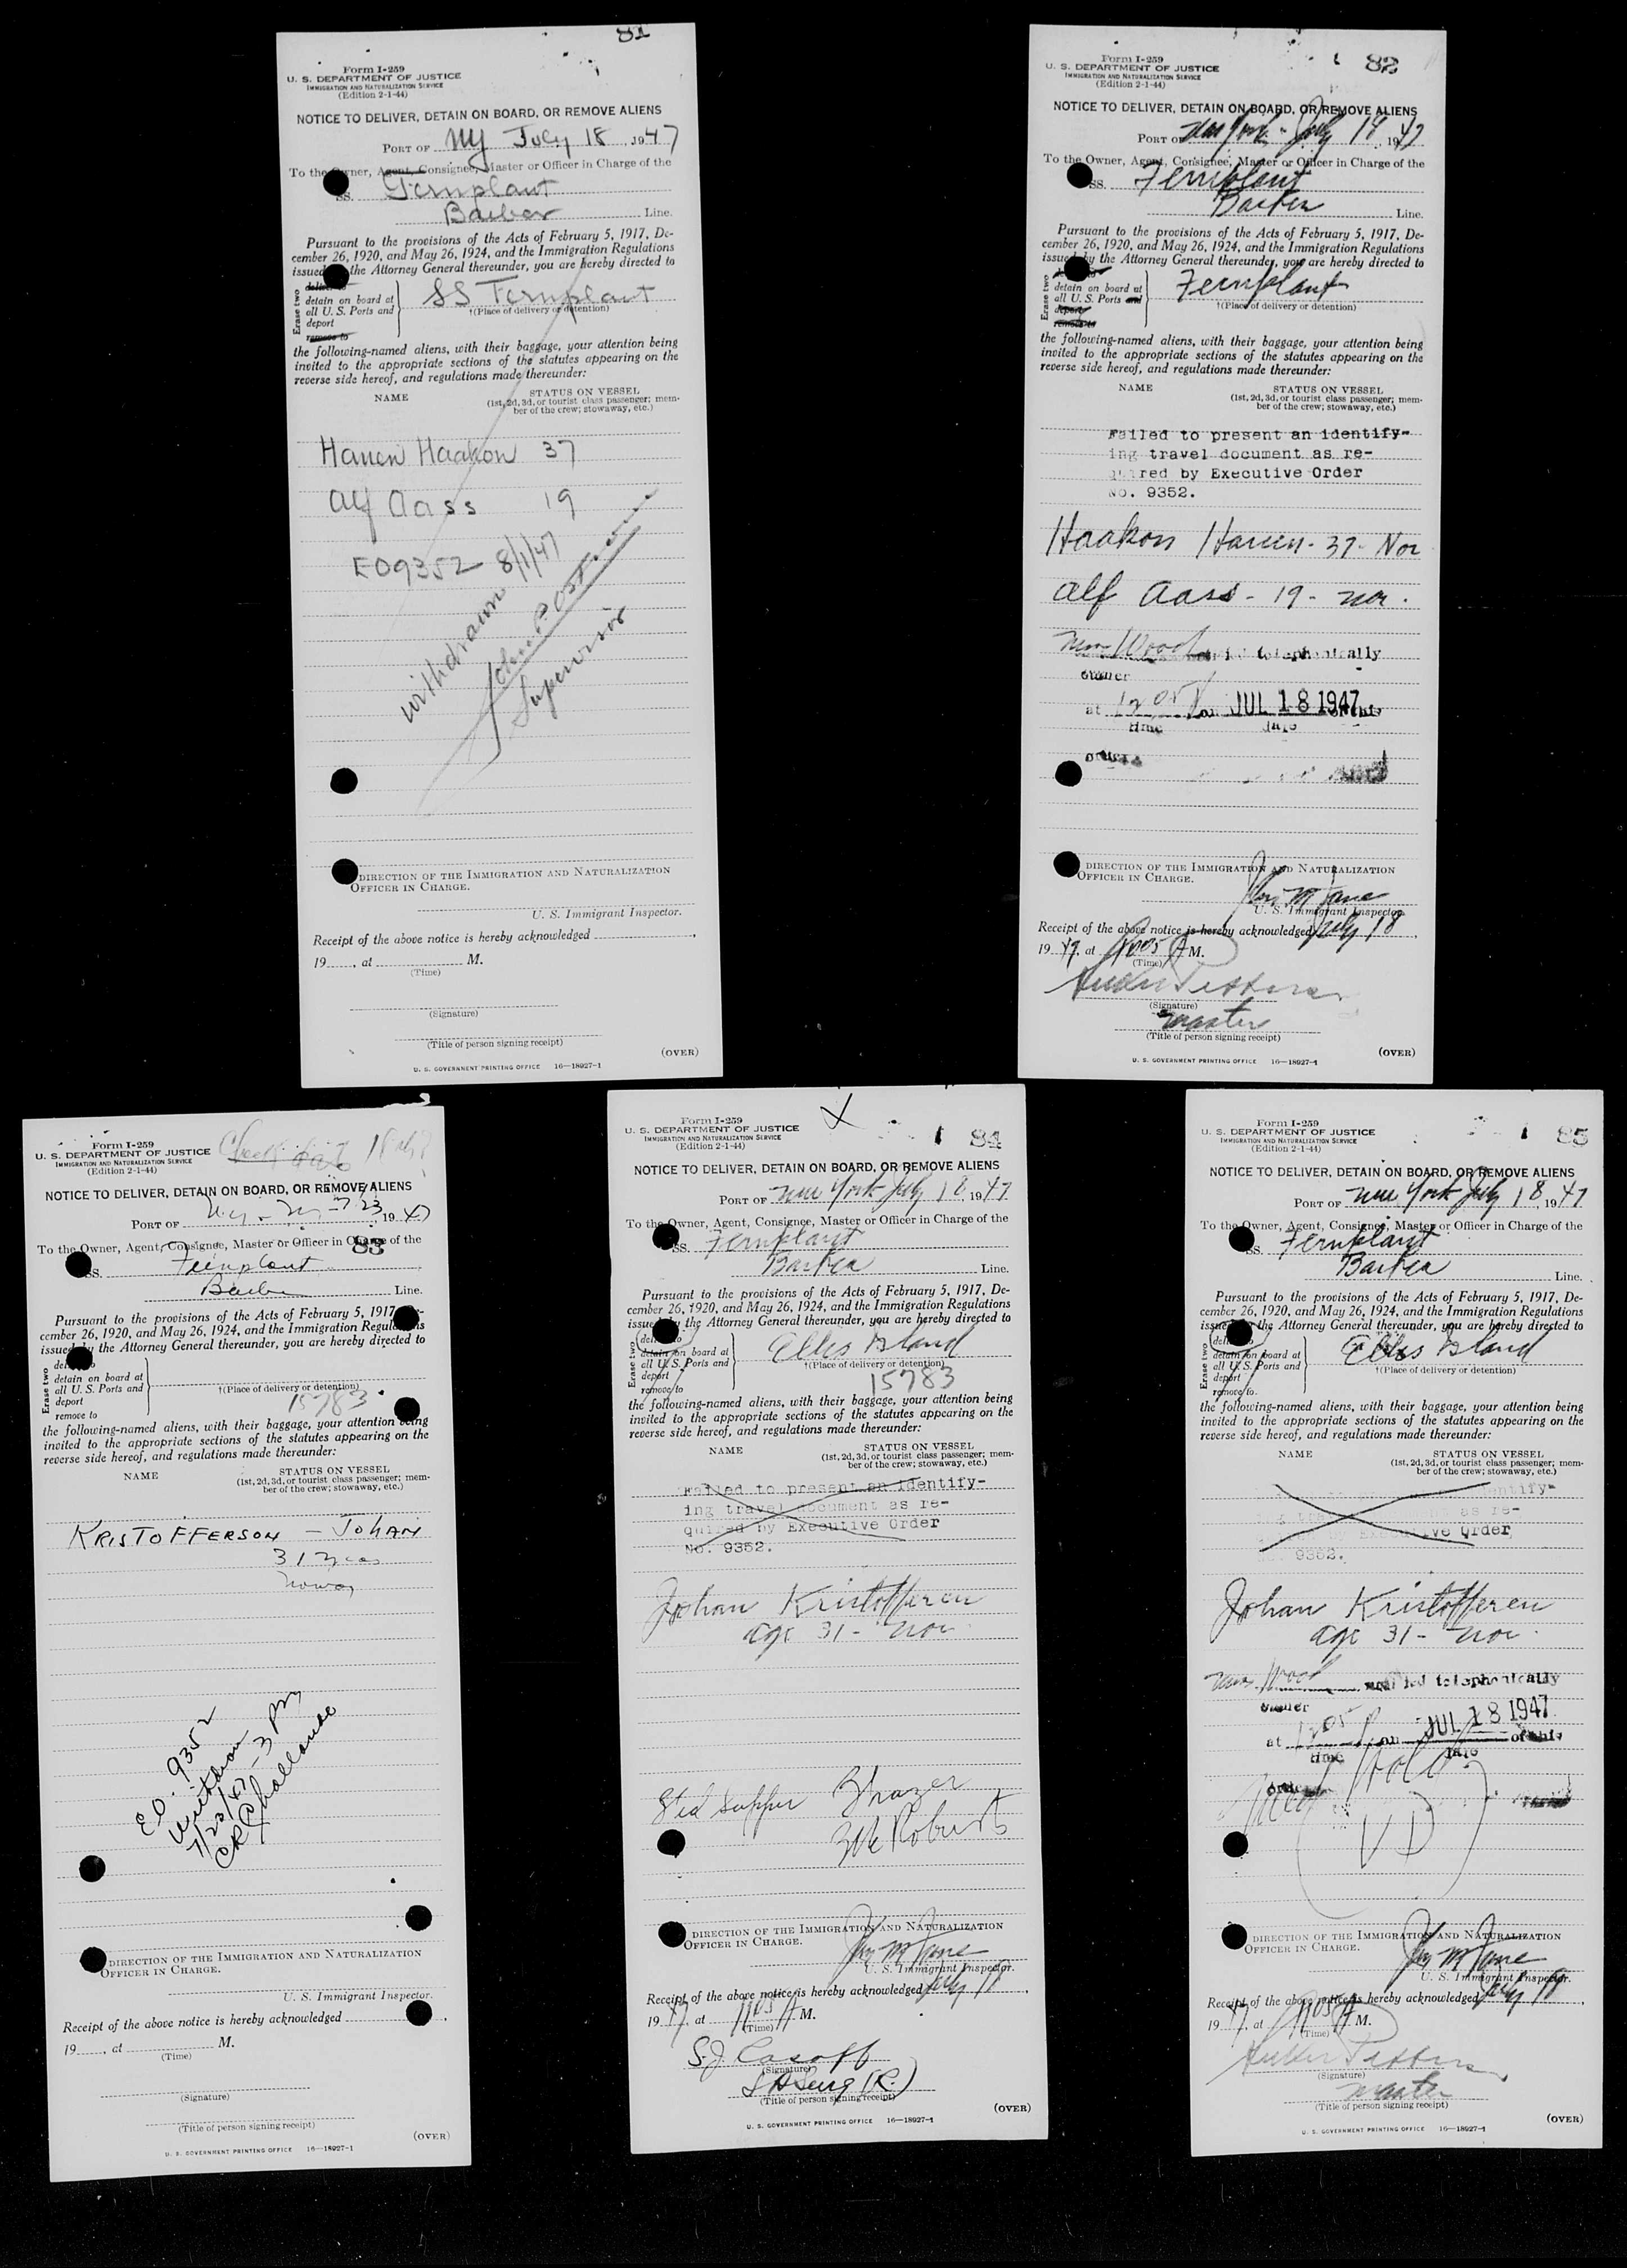 81
Form I-259
U. S. DEPARTMENT OF JUSTICE
IMMIGRATION AND NATURALIZATION SERVICE
(Edition 2-1-44)
NOTICE TO DELIVER, DETAIN ON BOARD, OR REMOVE ALIENS
PORT OF NY July 18, 1947
To the Owner, Agent, Consignee, Master or Officer in Charge of the
SS. Fernplant
Barber Line.
Pursuant to the provisions of the Acts of February 5, 1917, De-
cember 26, 1920, and May 26, 1924, and the Immigration Regulations
issued the Attorney General thereunder, you are hereby directed to
Erase two
deliver to
detain on board at
all U. S. Ports and
deport
remove to
SS Fernplant
†(Place of delivery or detention)
the following-named aliens, with their baggage, your attention being
invited to the appropriate sections of the statutes appearing on the
reverse side hereof, and regulations made thereunder:
NAME
STATUS ON VESSEL
(1st, 2d, 3d, or tourist class passenger; mem-
ber of the crew; stowaway, etc.)
Hauen Haakon 37
Alf Aass 19
EO9352 8/1/47
withdrawn
John P.
Supervisor
DIRECTION OF THE IMMIGRATION AND NATURALIZATION
OFFICER IN CHARGE.
U. S. Immigrant Inspector.
Receipt of the above notice is hereby acknowledged
19 , at M.
(Time)
(Signature)
(Title of person signing receipt)
(OVER)
U. S. GOVERNMENT PRINTING OFFICE 16—18927-1
82
Form I-259
U. S. DEPARTMENT OF JUSTICE
IMMIGRATION AND NATURALIZATION SERVICE
(Edition 2-1-44)
NOTICE TO DELIVER, DETAIN ON BOARD, OR REMOVE ALIENS
PORT OF New York - July 18, 1947
To the Owner, Agent, Consignee, Master or Officer in Charge of the
SS. Fernplant
Barber Line.
Pursuant to the provisions of the Acts of February 5, 1917, De-
cember 26, 1920, and May 26, 1924, and the Immigration Regulations
issued by the Attorney General thereunder, you are hereby directed to
Erase two
detain on board at
all U. S. Ports and
deport
remove to
Fernplant
†(Place of delivery or detention)
the following-named aliens, with their baggage, your attention being
invited to the appropriate sections of the statutes appearing on the
reverse side hereof, and regulations made thereunder:
NAME
STATUS ON VESSEL
(1st, 2d, 3d, or tourist class passenger; mem-
ber of the crew; stowaway, etc.)
Failed to present an identify-
ing travel document as re-
quired by Executive Order
No. 9352.
Haakon Hauen - 37 - Nor
Alf Aass - 19 - Nor.
Wood telephonically
owner
at 1205 P on JUL 18 1947 of this
time date
order
DIRECTION OF THE IMMIGRATION AND NATURALIZATION
OFFICER IN CHARGE.
U. S. Immigrant Inspector.
Receipt of the above notice is hereby acknowledged July 18,
1947, at 1105 A M.
(Time)
(Signature)
master
(Title of person signing receipt)
(OVER)
U. S. GOVERNMENT PRINTING OFFICE 16—18927-1
Form I-259
U. S. DEPARTMENT OF JUSTICE
IMMIGRATION AND NATURALIZATION SERVICE
(Edition 2-1-44)
NOTICE TO DELIVER, DETAIN ON BOARD, OR REMOVE ALIENS
PORT OF N.Y. - N.Y. - 7/23, 1947
To the Owner, Agent, Consignee, Master or Officer in Charge of the
83
SS. Fernplant
Barber Line.
Pursuant to the provisions of the Acts of February 5, 1917, De-
cember 26, 1920, and May 26, 1924, and the Immigration Regulations
issued by the Attorney General thereunder, you are hereby directed to
Erase two
detain on board at
all U. S. Ports and
deport
remove to
†(Place of delivery or detention)
15783
the following-named aliens, with their baggage, your attention being
invited to the appropriate sections of the statutes appearing on the
reverse side hereof, and regulations made thereunder:
NAME
STATUS ON VESSEL
(1st, 2d, 3d, or tourist class passenger; mem-
ber of the crew; stowaway, etc.)
KRISTOFFERSON - JOHAN
31 yrs
Norway
E.O. 9352
Withdrawn
7/23/47 - 3 PM
DIRECTION OF THE IMMIGRATION AND NATURALIZATION
OFFICER IN CHARGE.
U. S. Immigrant Inspector.
Receipt of the above notice is hereby acknowledged
19 , at M.
(Time)
(Signature)
(Title of person signing receipt)
(OVER)
U. S. GOVERNMENT PRINTING OFFICE 16—18927-1
X
84
Form I-259
U. S. DEPARTMENT OF JUSTICE
IMMIGRATION AND NATURALIZATION SERVICE
(Edition 2-1-44)
NOTICE TO DELIVER, DETAIN ON BOARD, OR REMOVE ALIENS
PORT OF New York July 18, 1947
To the Owner, Agent, Consignee, Master or Officer in Charge of the
SS. Fernplant
Barber Line.
Pursuant to the provisions of the Acts of February 5, 1917, De-
cember 26, 1920, and May 26, 1924, and the Immigration Regulations
issued by the Attorney General thereunder, you are hereby directed to
Erase two
detain on board at
all U. S. Ports and
deport
remove to
Ellis Island
†(Place of delivery or detention)
15783
the following-named aliens, with their baggage, your attention being
invited to the appropriate sections of the statutes appearing on the
reverse side hereof, and regulations made thereunder:
NAME
STATUS ON VESSEL
(1st, 2d, 3d, or tourist class passenger; mem-
ber of the crew; stowaway, etc.)
Failed to present an identify-
ing travel document as re-
quired by Executive Order
No. 9352.
Johan Kristofferen
age 31 - Nor.
Roberts
DIRECTION OF THE IMMIGRATION AND NATURALIZATION
OFFICER IN CHARGE.
U. S. Immigrant Inspector.
Receipt of the above notice is hereby acknowledged July 18,
1947, at 1105 A M.
(Time)
S. J. Casoff
(Signature)
(Title of person signing receipt)
(OVER)
U. S. GOVERNMENT PRINTING OFFICE 16—18927-1
85
Form I-259
U. S. DEPARTMENT OF JUSTICE
IMMIGRATION AND NATURALIZATION SERVICE
(Edition 2-1-44)
NOTICE TO DELIVER, DETAIN ON BOARD, OR REMOVE ALIENS
PORT OF New York July 18, 1947
To the Owner, Agent, Consignee, Master or Officer in Charge of the
SS. Fernplant
Barber Line.
Pursuant to the provisions of the Acts of February 5, 1917, De-
cember 26, 1920, and May 26, 1924, and the Immigration Regulations
issued the Attorney General thereunder, you are hereby directed to
Erase two
detain on board at
all U. S. Ports and
deport
remove to
Ellis Island
†(Place of delivery or detention)
the following-named aliens, with their baggage, your attention being
invited to the appropriate sections of the statutes appearing on the
reverse side hereof, and regulations made thereunder:
NAME
STATUS ON VESSEL
(1st, 2d, 3d, or tourist class passenger; mem-
ber of the crew; stowaway, etc.)
identify-
as re-
Executive Order
9352.
Johan Kristofferen
age 31 - Nor.
Wood notified telephonically
owner
at 1205 P on JUL 18 1947 of this
time date
order
Med Hold
(VD)
DIRECTION OF THE IMMIGRATION AND NATURALIZATION
OFFICER IN CHARGE.
U. S. Immigrant Inspector.
Receipt of the above notice is hereby acknowledged July 18,
1947, at 1105 A M.
(Time)
(Signature)
master
(Title of person signing receipt)
(OVER)
U. S. GOVERNMENT PRINTING OFFICE 16—18927-1